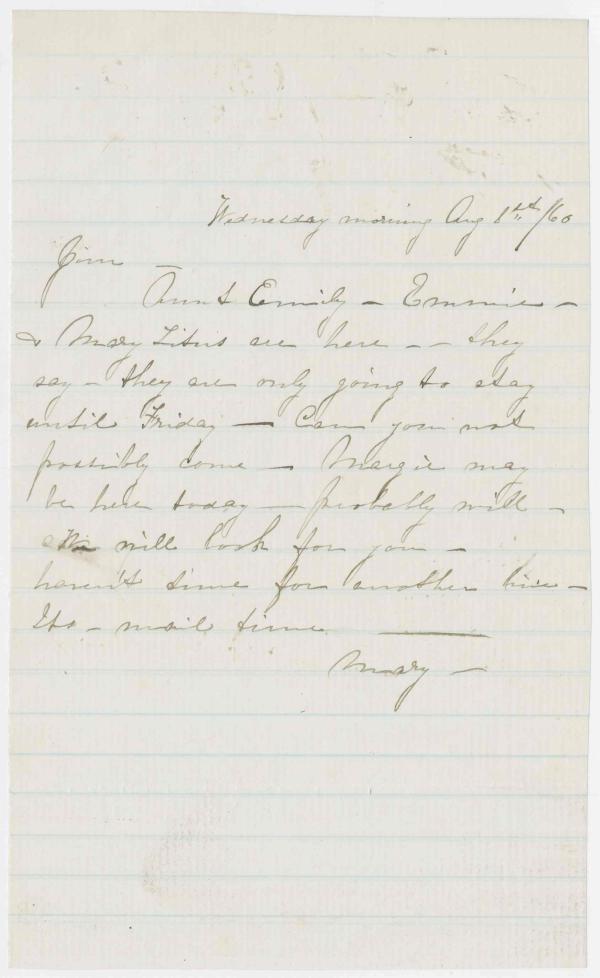 Wednesday morning Aug 1st/60
Jim —
Aunt Emily — Emmie —
& Mary Titus are here — — they
say — they are only going to stay
until Friday — Can you not
possibly come — Margie may
be here today — probably will —
We will look for you —
haven't time for another line —
Its — mail time
Mary —